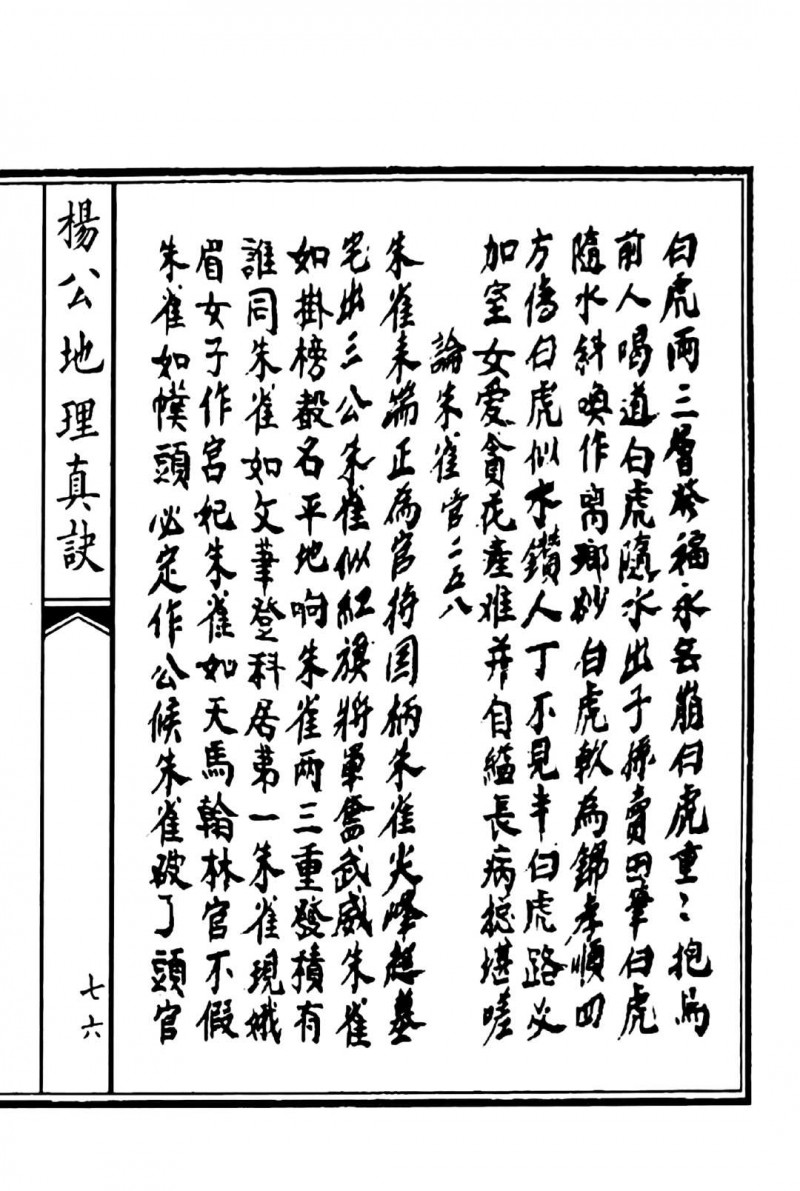 白虎兩三層發福永無崩白虎重々抱馬
前人喝道白虎隨水出子孫賣田筆白虎
隨水斜喚作离鄉砂白虎軟為錦孝順四
方傳白虎似水鑽人丁不見半白虎路必
加室女愛貪花產难并自縊長病捴堪嗟
論朱雀管二五八
朱雀来端正為官持国柄朱雀火峰起墓
宅出三公朱雀似紅旗將軍奮武威朱雀
如掛榜報名平地响朱雀两三重發積有
誰同朱雀如文筆登科居第一朱雀現娥
眉女子作宮妃朱雀如天馬翰林官不假
朱雀如幞頭必定作公候朱雀破了頭官
楊公地理真訣
七六